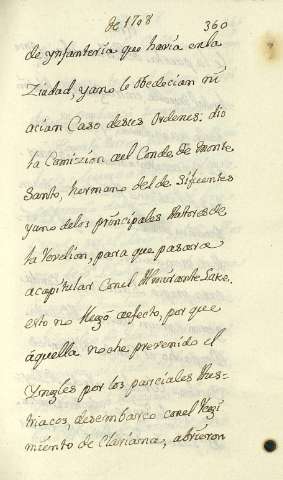 de 1708
360
de ynfanteria que havia en la
Ziudad, ya no le obedecian ni
acian Caso de sus Ordenes: dio
la Comizion al Conde de Monte
Santo, hermano del de Sifuentes
y uno de los principales Autores de
la Revelion, para que pasara
a capitular Con el Almirante Lake.
esto no llegó a efecto, por que
áquella noche prevenido el
Yngles por los parciales Aus-
triacos, desembarcó con el Regi
miento de Clariana, abrieron